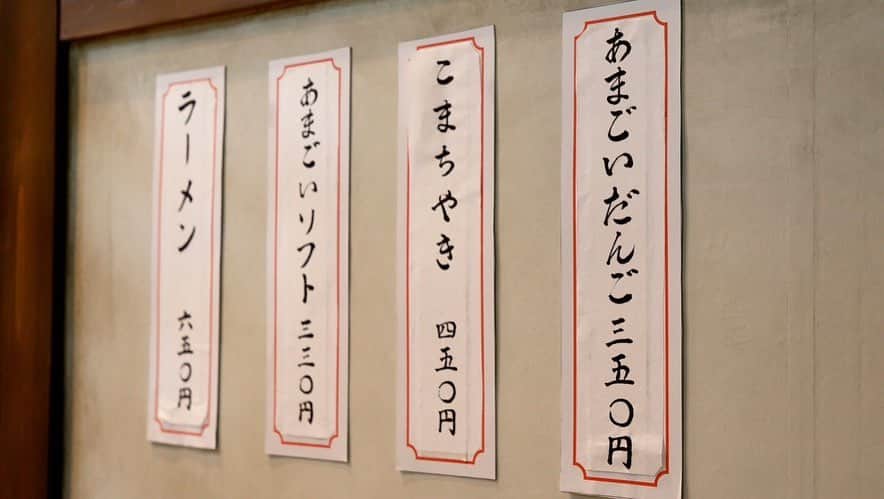 あまごいだんご 三五〇円
こまちやき 四五〇円
あまごいソフト 三三〇円
ラーメン 六五〇円